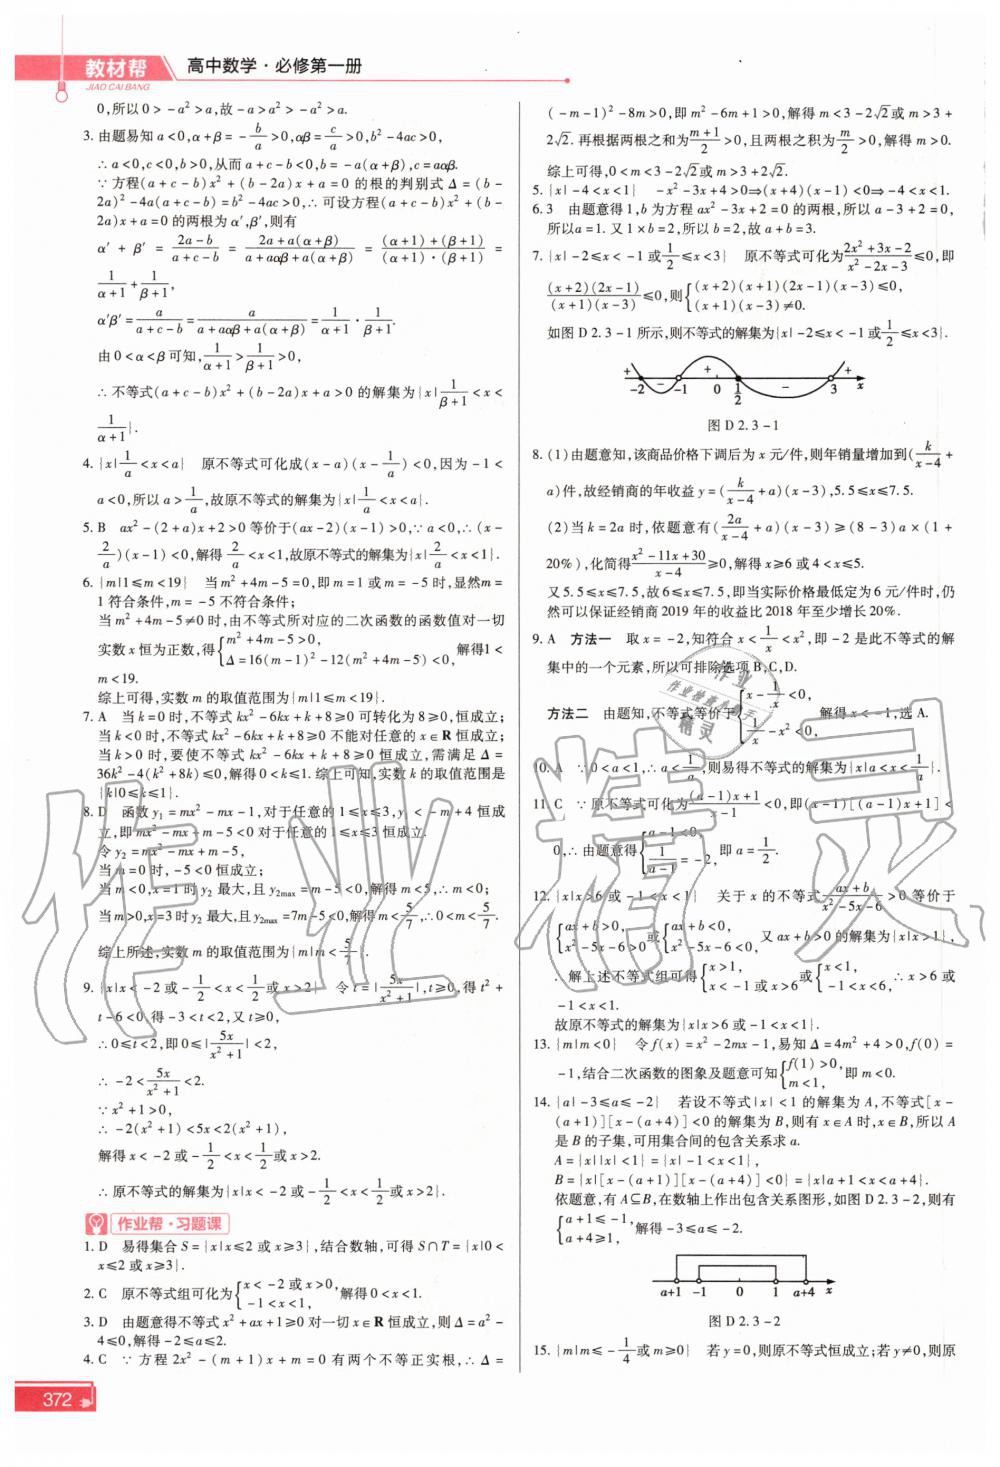 教材帮
JIAO CAI BANG
高中数学·必修第一册
0,所以0>-a²>a,故-a>a²>-a²>a.
3. 由题易知a<0,α+β=-b/a>0,αβ=c/a>0,b²-4ac>0,
∴a<0,c<0,b>0,从而a+c-b<0,b=-a(α+β),c=aαβ.
∵方程(a+c-b)x²+(b-2a)x+a=0的根的判别式Δ=(b-
2a)²-4a(a+c-b)=b²-4ac>0,∴可设方程(a+c-b)x²+(b-
2a)x+a=0的两根为α′,β′,则有
α′+β′=(2a-b)/(a+c-b)=(2a+a(α+β))/(a+aαβ+a(α+β))=((α+1)+(β+1))/((α+1)·(β+1))=
1/(α+1)+1/(β+1),
α′β′=a/(a+c-b)=a/(a+aαβ+a(α+β))=1/(α+1)·1/(β+1).
由0<α<β可知,1/(α+1)>1/(β+1)>0,
∴不等式(a+c-b)x²+(b-2a)x+a>0的解集为{x|1/(β+1)<x<
1/(α+1)}.
4. {x|1/a<x<a} 原不等式可化成(x-a)(x-1/a)<0,因为-1<
a<0,所以a>1/a,故原不等式的解集为{x|1/a<x<a}.
5. B ax²-(2+a)x+2>0等价于(ax-2)(x-1)>0,∵a<0,∴(x-
2/a)(x-1)<0,解得2/a<x<1,故原不等式的解集为{x|2/a<x<1}.
6. {m|1≤m<19} 当m²+4m-5=0,即m=1或m=-5时,显然m=
1符合条件,m=-5不符合条件;
当m²+4m-5≠0时,由不等式所对应的二次函数的函数值对一切
实数x恒为正数,得{m²+4m-5>0, Δ=16(m-1)²-12(m²+4m-5)<0, 解得1<
m<19.
综上可得,实数m的取值范围为{m|1≤m<19}.
7. A 当k=0时,不等式kx²-6kx+k+8≥0可转化为8≥0,恒成立;
当k<0时,不等式kx²-6kx+k+8≥0不能对任意的x∈R恒成立;
当k>0时,要使不等式kx²-6kx+k+8≥0恒成立,需满足Δ=
36k²-4(k²+8k)≤0,解得0<k≤1.综上可知,实数k的取值范围是
{k|0≤k≤1}.
8. D 函数y₁=mx²-mx-1,对于任意的1≤x≤3,y₁<-m+4恒成
立,即mx²-mx+m-5<0对于任意的1≤x≤3恒成立.
令y₂=mx²-mx+m-5,
当m=0时,-5<0恒成立;
当m<0,x=1时y₂最大,且y₂max=m-5<0,解得m<5,∴m<0;
当m>0,x=3时y₂最大,且y₂max=7m-5<0,解得m<5/7,∴0<m<5/7.
综上所述,实数m的取值范围为{m|m<5/7}.
9. {x|x<-2或-1/2<x<1/2或x>2} 令t=|5x/(x²+1)|,t≥0,得t²+
t-6<0,得-3<t<2,又t≥0,
∴0≤t<2,即0≤|5x/(x²+1)|<2,
∴-2<5x/(x²+1)<2.
∵x²+1>0,
∴-2(x²+1)<5x<2(x²+1),
解得x<-2或-1/2<x<1/2或x>2.
∴原不等式的解集为{x|x<-2或-1/2<x<1/2或x>2}.
作业帮·习题课
1. D 易得集合S={x|x≤2或x≥3},结合数轴,可得S∩T={x|0<
x≤2或x≥3}.
2. C 原不等式组可化为{x<-2或x>0, -1<x<1, 解得0<x<1.
3. D 由题意得不等式x²+ax+1≥0对一切x∈R恒成立,则Δ=a²-
4≤0,解得-2≤a≤2.
4. C ∵方程2x²-(m+1)x+m=0有两个不等正实根,∴Δ=
372
(-m-1)²-8m>0,即m²-6m+1>0,解得m<3-2√2或m>3+
2√2.再根据两根之和为(m+1)/2>0,且两根之积为m/2>0,解得m>0.
综上可得,0<m<3-2√2或m>3+2√2.
5. {x|-4<x<1} -x²-3x+4>0⇒(x+4)(x-1)<0⇒-4<x<1.
6. 3 由题意得1,b为方程ax²-3x+2=0的两根,所以a-3+2=0,
所以a=1.又1×b=2,所以b=2,故a+b=3.
7. {x|-2≤x<-1或1/2≤x<3} 原不等式可化为(2x²+3x-2)/(x²-2x-3)≤0,即
(x+2)(2x-1)/(x+1)(x-3)≤0,则{(x+2)(x+1)(2x-1)(x-3)≤0, (x+1)(x-3)≠0.
如图D2.3-1所示,则不等式的解集为{x|-2≤x<-1或1/2≤x<3}.
+ - + - +
-2 -1 0 1/2 3 x
图D2.3-1
8. (1)由题意知,该商品价格下调后为x元/件,则年销量增加到(k/(x-4)+
a)件,故经销商的年收益y=(k/(x-4)+a)(x-3),5.5≤x≤7.5.
(2)当k=2a时,依题意有(2a/(x-4)+a)(x-3)≥(8-3)a×(1+
20%),化简得(x²-11x+30)/(x-4)≥0,解得x≥6或4<x≤5.
又5.5≤x≤7.5,故6≤x≤7.5,即当实际价格最低定为6元/件时,仍
然可以保证经销商2019年的收益比2018年至少增长20%.
9. A 方法一 取x=-2,知符合x<1/x<x²,即-2是此不等式的解
集中的一个元素,所以可排除选项B,C,D.
方法二 由题知,不等式等价于{x-1/x<0, 1/x-x²<0, 解得x<-1,选A.
10. A ∵0<a<1,∴a<1/a,则易得不等式的解集为{x|a<x<1/a}.
11. C ∵原不等式可化为((a-1)x+1)/(x-1)<0,即(x-1)[(a-1)x+1]<
0,∴由题意得{a-1<0, -1/(a-1)=-2, 即a=1/2.
12. {x|x>6或-1<x<1} 关于x的不等式(ax+b)/(x²-5x-6)>0等价于
{ax+b>0, x²-5x-6>0 或{ax+b<0, x²-5x-6<0, 又ax+b>0的解集为{x|x>1},
∴解上述不等式组可得{x>1, x<-1或x>6 或{x<1, -1<x<6, ∴x>6或
-1<x<1.
故原不等式的解集为{x|x>6或-1<x<1}.
13. {m|m<0} 令f(x)=x²-2mx-1,易知Δ=4m²+4>0,f(0)=
-1,结合二次函数的图象及题意可知{f(1)>0, m<1, 即m<0.
14. {a|-3≤a≤-2} 若设不等式|x|<1的解集为A,不等式[x-
(a+1)][x-(a+4)]<0的解集为B,则有x∈A时,x∈B,所以A
是B的子集,可用集合间的包含关系求a.
A={x||x|<1}={x|-1<x<1},
B={x|[x-(a+1)][x-(a+4)]<0}={x|a+1<x<a+4}.
依题意,有A⊆B,在数轴上作出包含关系图形,如图D2.3-2,则有
{a+1≤-1, a+4≥1, 解得-3≤a≤-2.
a+1 -1 0 1 a+4 x
图D2.3-2
15. {m|m≤-1/4或m≥0} 若y=0,则原不等式恒成立;若y≠0,则原
作业精灵